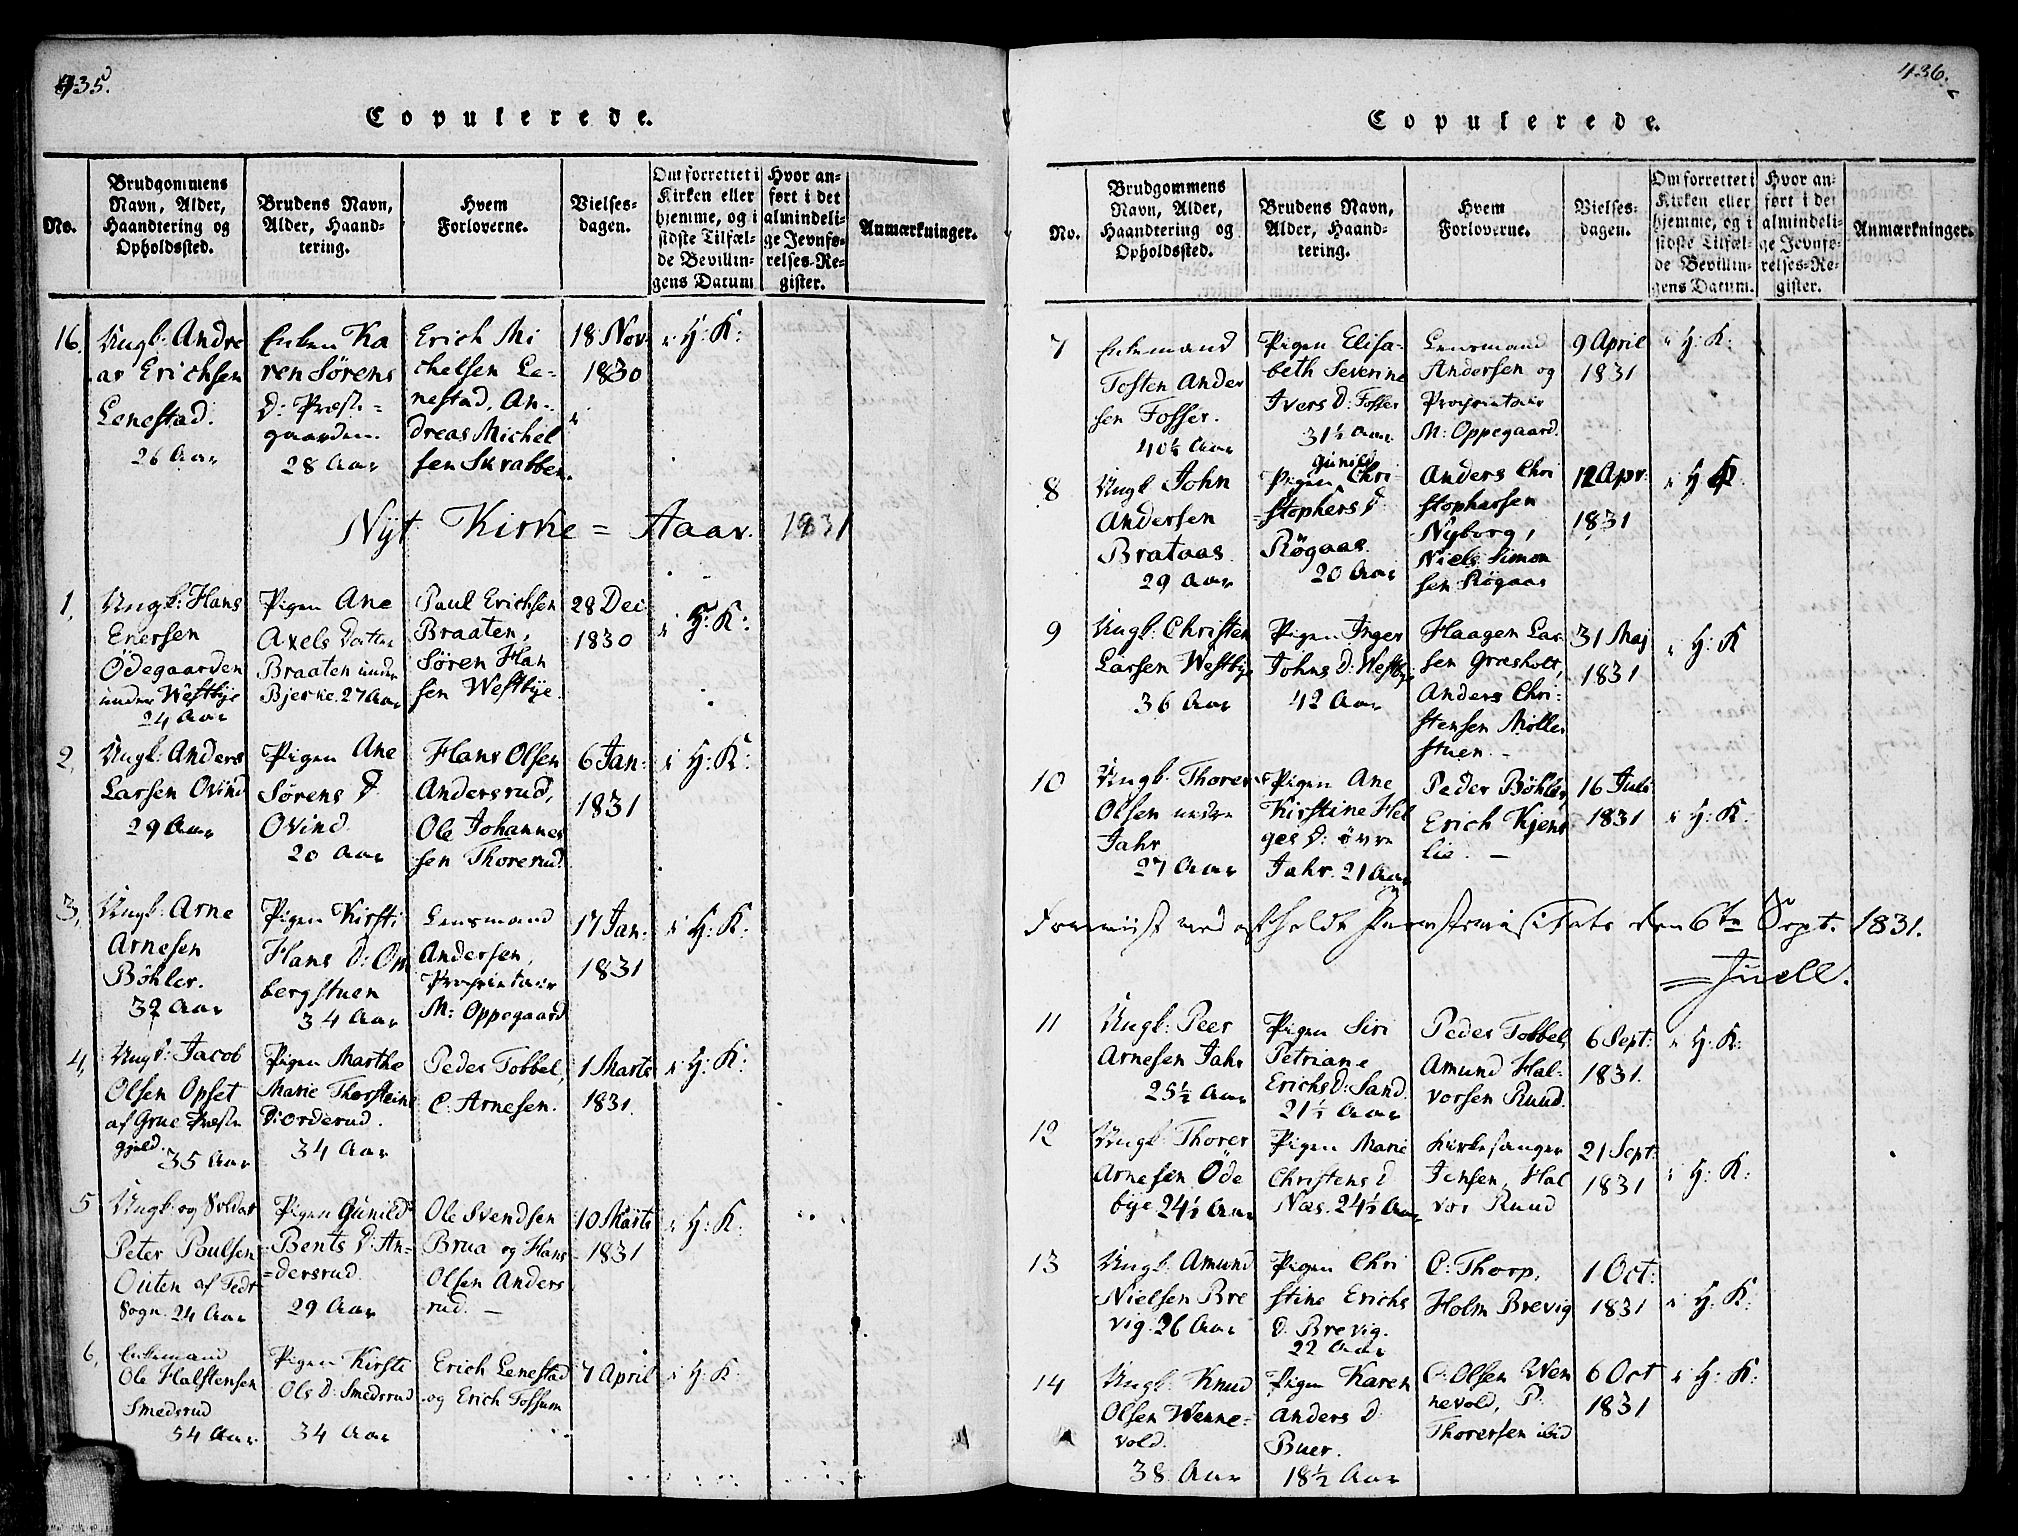 435.
Copulerede.
No.
Brudgommens
Navn, Alder,
Haandtering og
Opholdssted.
Brudens Navn,
Alder, Haand-
tering.
Hvem
Forloverne.
Vielses-
dagen.
Om forrettet i
Kirken eller
hjemme, og i
sidste Tilfæl-
de Bevillin-
gens Datum
Hvor an-
ført i det
almindeli-
ge Jevnfø-
relses-Re-
gister.
Anmærkninger.
16.
Ungk: Andre
as Erichsen
Lenestad.
26 Aar
Enken Ka
ren Sørens
D: Præste=
gaarden.
28 Aar
Erich Mi
chelsen Le-
nestad, An-
dreas Michel
sen Skrabben.
18 Nov.
1830
i H: K:
Nyt Kirke = Aaar. 1831
1.
Ungk: Hans
Enersen
Ödegaarden
under Westbye
24 Aar
Pigen Ane
Axels Datter
Braaten under
Bjerke. 27 Aar
Paul Erichsen
Braaten,
Søren Han
sen Westbye.
28 Dec:
1830
i H: K:
2.
Ungk: Anders
Larsen Ovind
29 Aar
Pigen Ane
Sørens D
Ovind.
20 Aar
Hans Olsen
Andersrud,
Ole Johannes
sen Thorerud.
6 Jan:
1831
i H: K:
3.
Ungk: Arne
Arnesen
Böhler.
32 Aar
Pigen Kirsti
Hans D: Om
bergstuen
34 Aar
Lensmand
Andersen,
Proprietair
M: Oppegaard
17 Jan:
1831
i H: K:
4.
Ungk: Jacob
Olsen Opset
af Grue Præste
gjeld.
35 Aar
Pigen Marthe
Marie Thorsteins
D: Orderud.
34 Aar
Peder Tobbel,
C: Arnesen.
1 Marts
1831.
i H: K:
5
Ungk: og Soldat
Peter Poulsen
Outen af Fedt
Sogn. 24 Aar
Pigen Gunild
Bents D: An-
=dersrud.
29 Aar
Ole Svendsen
Brua og Hans
Olsen Anders
rud. —
10 Marts
1831
i H: K:
6.
Enkemand
Ole Halstensen
Smedsrud
54 Aar
Pigen Kirsti
Ols D: Smedsrud
34 Aar
Erich Lenestad
og Erich Fossum
7 April
i H: K:
436.
Copulerede.
No.
Brudgommens
Navn, Alder,
Haandtering og
Opholdssted.
Brudens Navn,
Alder, Haand-
tering.
Hvem
Forloverne.
Vielses-
dagen.
Om forrettet i
Kirken eller
hjemme, og i
sidste Tilfæl-
de Bevillin-
gens Datum.
Hvor an-
ført i det
almindeli-
ge Jevnfø-
relses-Re-
gister.
Anmærkninger.
7
Enkemand
Tosten Ander
sen Fosser.
40½ Aar
Pigen Elisa-
beth Severine
Ivers D: Fosser
31½ Aar
Lensmand
Andersen og
Proprietair
M: Oppegaard.
9 April
1831
i H: K:
8
Ungk: John
Andersen
Brataas.
29 Aar
Gunild
Pigen Chri
=stophers D
Rögaas.
20 Aar
Anders Chri
stophersen
Nyborg,
Niels Simon
sen Rögaas
12 Apr:
1831
i H K:
9
Ungk: Christen
Larsen Westbye
36 Aar
Pigen Inger
Johns D: Westbye
42 Aar
Haagen Lar-
sen Græsholt,
Anders Chri-
stensen Möller
stuen. -
31 Maj
1831
i H: K
10
Ungk: Thorer
Olsen nedre
Jahr
27 Aar
Pigen Ane
Kirstine Hel
ges D: øvre
Jahr. 21 Aar
Peder Böhler,
Erich Kjens
lie. —
16 Juli
1831
i H: K:
6te Sept. 1831.
Juell.
11
Ungk: Peer
Arnesen Jahr
25½ Aar
Pigen Siri
Petriane
Erichs D: Sand.
21½ Aar
Peder Tobbel,
Amund Hal-
vorsen Ruud.
6 Sept:
1831.
i H: K:
12
Ungk: Thorer
Arnesen Öde
bye 24½ Aar
Pigen Marie
Christens D
Næs. 24½ Aar
Kirkesanger
Jensen, Hal
vor Ruud
21 Sept:
1831
i H: K:
13
Ungk: Amund
Nielsen Bre
vig. 26 Aar
Pigen Chri
stine Erichs
D. Brevig.
22 Aar
C: Thorp,
Holm Brevig
1 Oct:
1831
i H: K:
14
Ungk: Knud
Olsen Wenne-
vold.
38 Aar
Pigen Karen
Anders D
Buer.
18½ Aar
C: Olsen Wen
nevold, P:
Thorersen ibid
6 Oct
1831
i H: K: